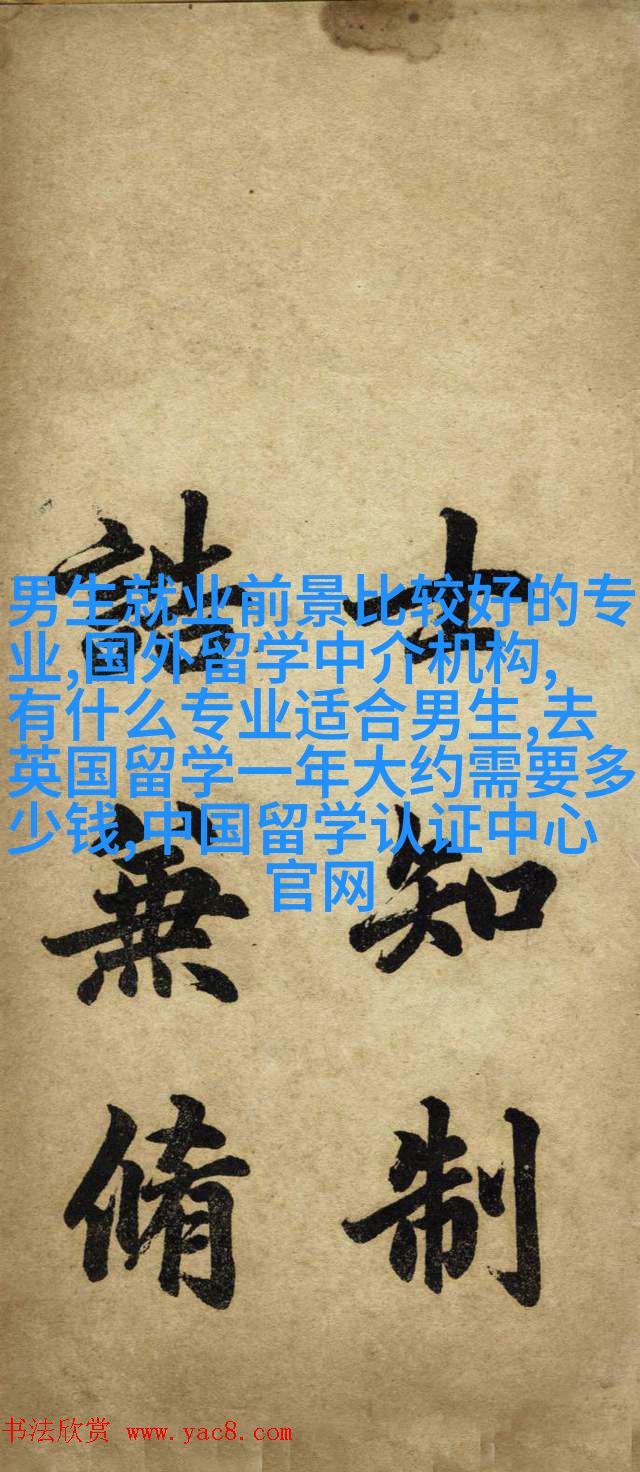 男生就业前景比较好的专
业,国外留学中介机构,
有什么专业适合男生,去
英国留学一年大约需要多
少钱,中国留学认证中心
官网
士知制
誥兼脩
书法欣赏 www.yac8.com